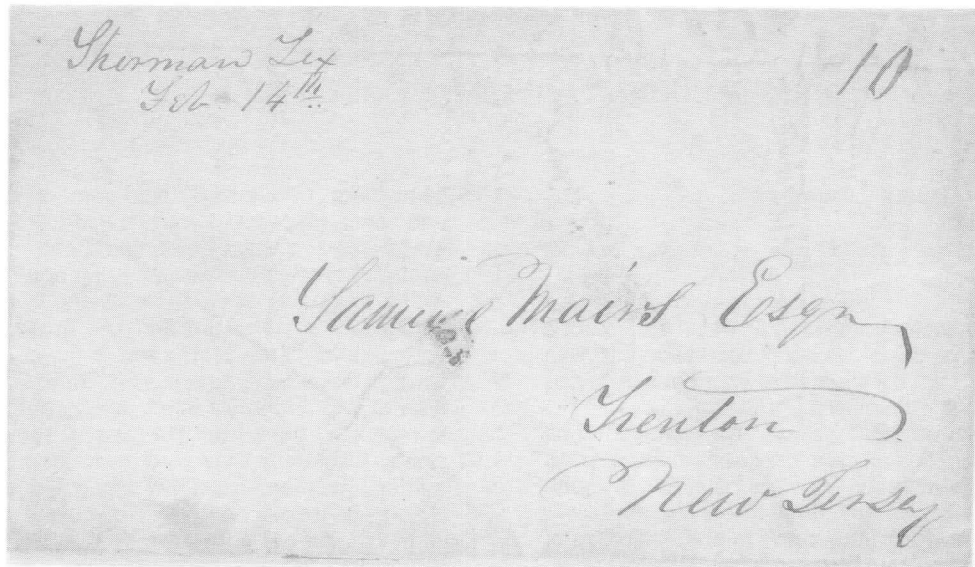 Sherman Tex
Feb 14th
10
Samuel Mairs Esqr
Trenton
New Jersey